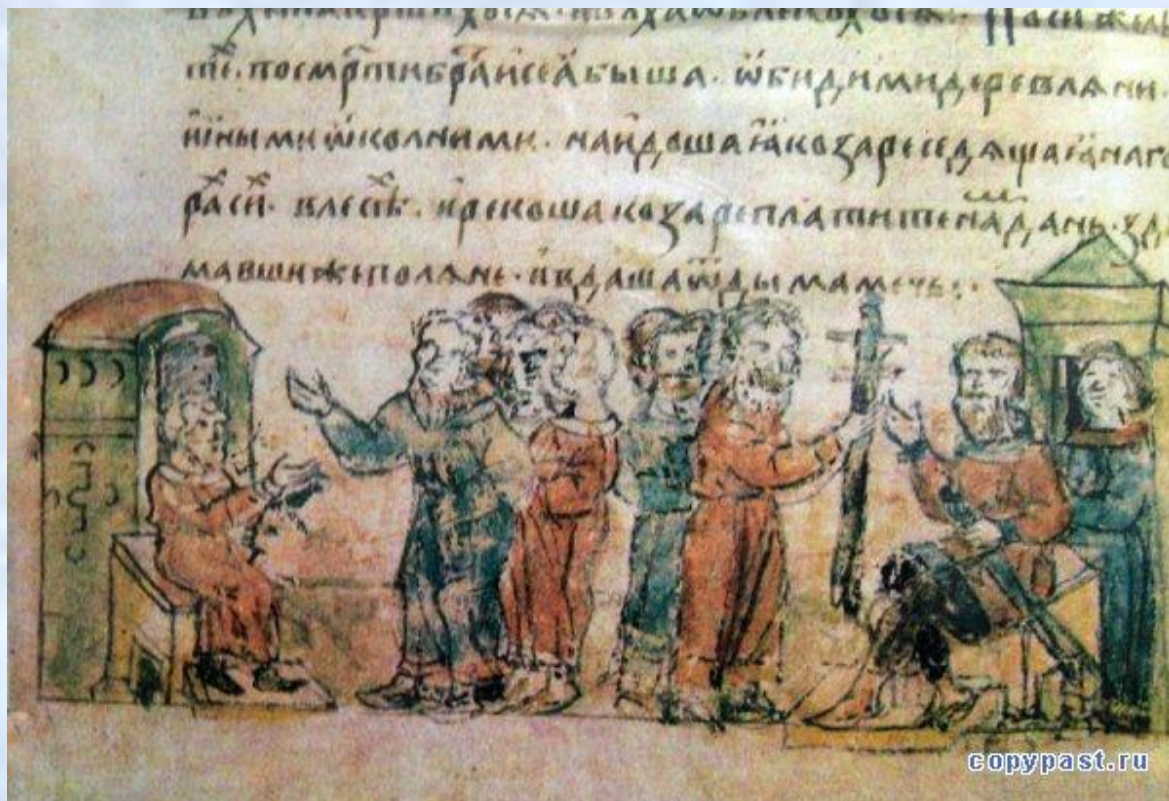 тс҃. по смр҃ти бра҃и сеѧ̑ быша. ѡ҆бидими деревлѧни.
и҆ины ми ѡ҆колними. наидоша ꙗ҆ козаре седѧща ꙗ҆ на го
рах си. в лесѣх. и҆ рекоша козаре платите на дань. зд
мавши же полѧне. и҆ вдаша ѿ дыма мечь:.
copypast.ru